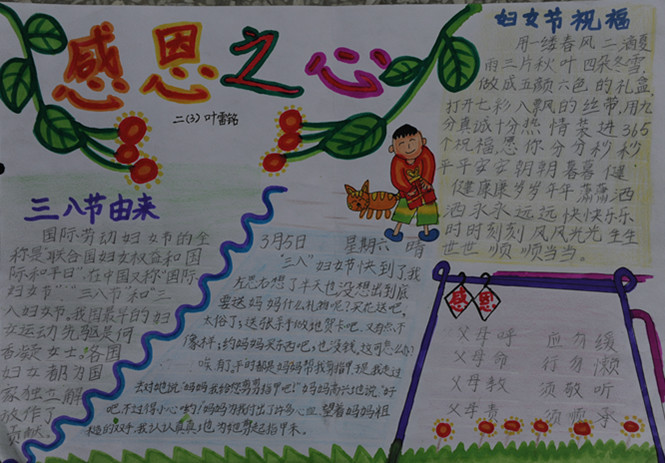 感恩之心
二(3) 叶雪铭
妇女节祝福
用一缕春风二滴夏
雨三片秋叶四朵冬雪,
做成五颜六色的礼盒,
打开七彩八飘风的丝带,用九
分真诚十分热情装进365
个祝福,愿你分分秒秒
平平安安朝朝暮暮健
健康康岁岁年年潇潇洒
洒永永远远快快乐乐
时时刻刻风风光光生生
世世顺顺当当。
三八节由来
国际劳动妇女节的全
称是"联合国妇女权益和国
际和平日"。在中国又称"国际
妇女节"、"三八节"和"三
八妇女节。我国最早的妇
女运动先驱是何
香凝女士。各国
妇女都为国
家独立解
放作了
贡献。
3月5日 星期六 晴
"三八"妇女节快到了我
左思右想了半天也没想出到底
要送妈妈什么礼物呢?买花送吧,
太俗了;送张手做地贺卡吧,又有点不
像样;约妈妈买东西吧;也没钱,这可怎么办?
唉!有了,平时都是妈妈帮我剪指甲,现我走过
去对她说:"妈妈我给您剪剪指甲吧!"妈妈高兴地说:"好
吧,不过得小心哟!"妈妈为我付出了许多心血,望着妈妈粗
糙的双手,我认认真真地为她剪起指甲来。
感恩
父母呼 应勿缓
父母命 行勿懒
父母教 须敬听
父母责 须顺承